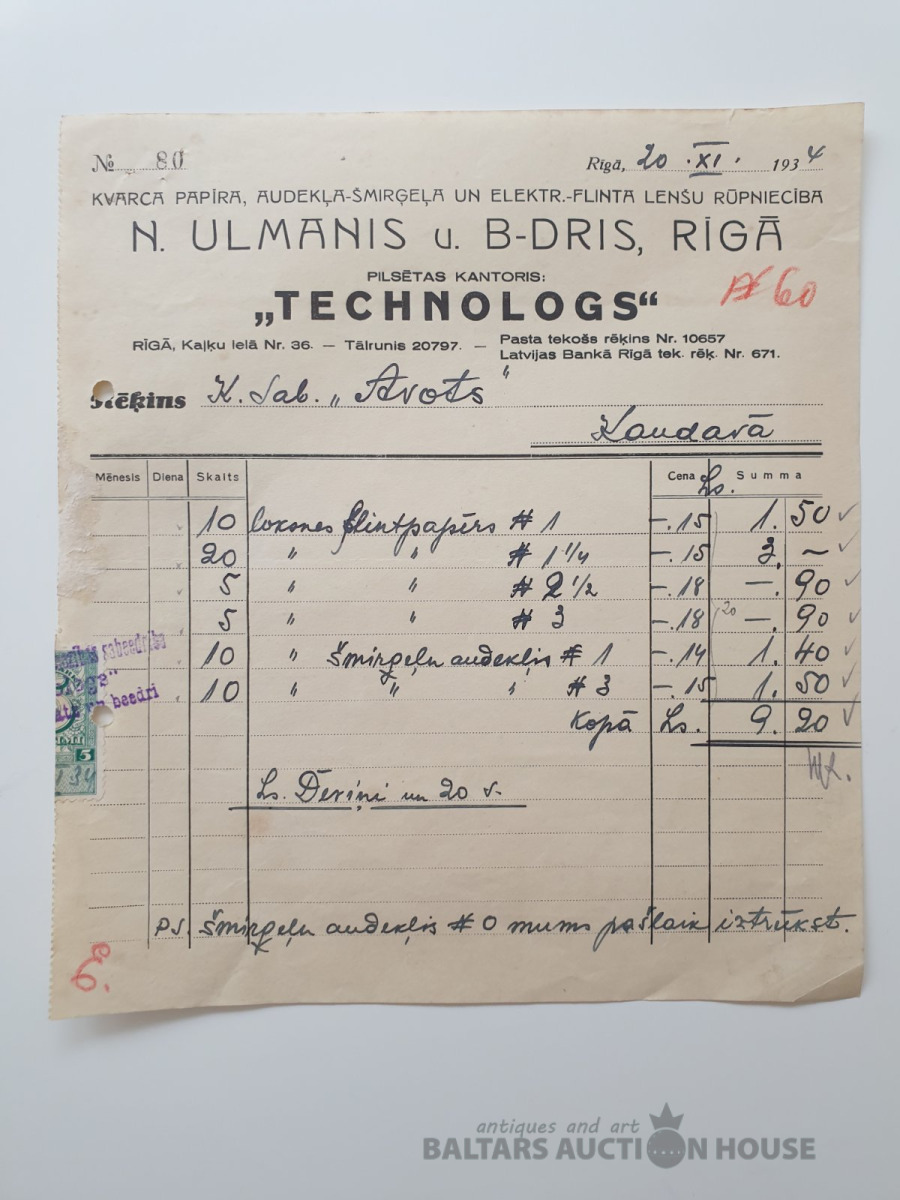 № 80 Rīgā, 20. XI. 1934
KVARCA PAPĪRA, AUDEKĻA-ŠMIRĢEĻA UN ELEKTR.-FLINTA LENŠU RŪPNIECĪBA
N. ULMANIS u. B-DRIS, RĪGĀ
PILSĒTAS KANTORIS:
60
„TECHNOLOGS“
RĪGĀ, Kaļķu ielā Nr. 36. — Tālrunis 20797. — Pasta tekošs rēķins Nr. 10657
Latvijas Bankā Rīgā tek. rēķ. Nr. 671.
Rēķins K. Sab. „Avots"
Kandavā
Mēnesis Diena Skaits Cena Ls. Summa
10 loksnes flintpapīrs # 1 —.15 1.50
20 " " # 1 1/4 —.15 3.—
5 " " # 2 1/2 —.18 —.90
5 " " # 3 —.18 20 —.90
10 " šmirģeļu audekļis # 1 —.14 1.40
10 " " " # 3 —.15 1.50
kopā Ls. 9.20
sabeedrība
beedri
5
34
Ls. Deviņi un 20 s.
P.S. Šmirģeļu audekļis # 0 mums pašlaik iztrūkst.
antiques and art
BALTARS AUCTION HOUSE